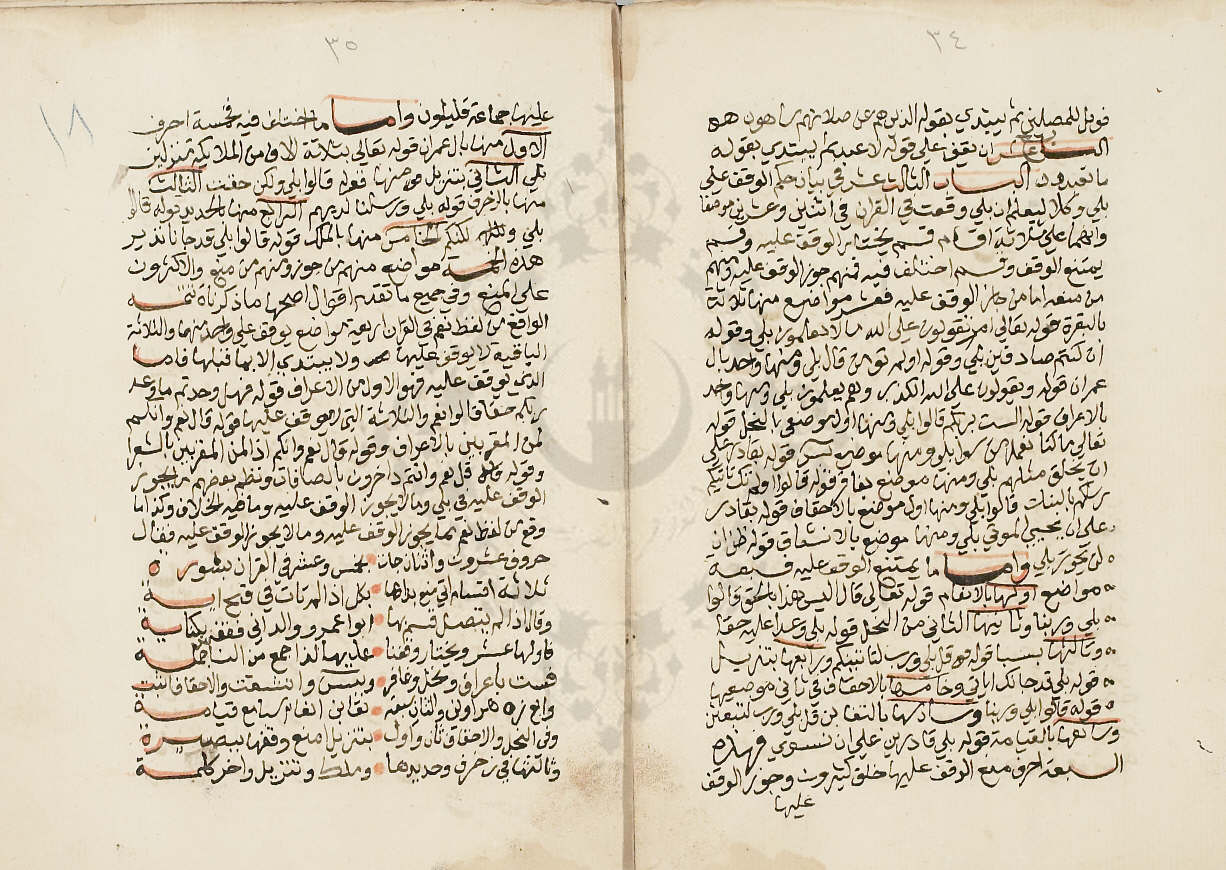 ٣٤
فويل للمصلين ثم يبتدي بقوله الذين هم عن صلاتهم ساهون
السابع عشر ان يقف على قوله لا اعبد ثم يبتدي بقوله
ما تعبدون الباب الثالث عشر في بيان حكم الوقف على
بلى وكلا ليعلم ان بلى وقعت في القران في اثنين وعشرين موضعا
وانها على ثلاثة اقسام قسم يختار الوقف عليه وقسم
يمتنع الوقف وقسم اختلف فيه فمنهم جوز الوقف عليه ومنهم
من منعه اما من جاز الوقف عليه فعشر مواضع منها ثلاثة
بالبقرة قوله تعالى ام تقولون على الله ما لا تعلمون بلى وقوله
ان كنتم صادقين بلى وقوله اولم تومن قال بلى ومنها واحد بال
عمران قوله ويقولون على الله الكذب وهم يعلمون بلى ومنها واحد
بالاعراف قوله الست بربكم قالوا بلى ومنها اول موضعي بالنحل قوله
تعالى ما كنا نعمل من سوء بلى ومنها موضع قوله بقادر على
ان يخلق مثلهم بلى ومنها موضع قوله قالوا اولم تك تاتيكم
رسلكم بالبينات قالوا بلى ومنها اول موضع بالاحقاف قوله بقادر
على ان يحيي الموتى بلى ومنها موضع بالانشقاق قوله ظن ان
لن يحور بلى واما ما يمتنع الوقف عليه فسبعة
مواضع اولها بالانعام قوله تعالى قال اليس هذا بالحق قالوا
بلى وربنا وثانيها الثاني من النحل قوله بلى وعدا عليه حقا
وثالثها بسبا قوله قل بلى وربي لتاتينكم ورابعها بتنزيل
قوله بلى قد جاتك اياتي وخامسها بالاحقاف في ثاني موضعيها
قوله قالوا بلى وربنا وسادسها بالتغابن قل بلى وربي لتبعثن
وسابعها بالقيامة قوله بلى قادرين على ان نسوي فهذه
السبعة احرف منع الوقف عليها خلق كثيرون وجوز الوقف
عليها
٣٥
١٨
عليها جماعة قليلون واما ما اختلف فيه فخمسة احرف
الاول منها بال عمران قوله تعالى بثلاثة الاف من الملائكة منزلين
بلى الثاني بتنزيل منها قوله قالوا بلى ولكن حقت الثالث
منها بالزخرف قوله بلى ورسلنا لديهم الرابع منها بالحديد قوله قالوا
بلى ولكنكم الخامس منها بالملك قوله قالوا بلى قد جانا نذير
هذه الخمسة مواضع منهم من جوز ومنهم من منع والاكثرون
على المنع وفي جميع ما تقدم اقوال اصحها ما ذكرناه تتمة
الواقع من لفظ نعم في القران اربعة مواضع يوقف على واحد منها والثلاثة
الباقية لا يوقف عليها ولا يبتدي الا بما قبلها فاما
الذي يوقف عليه فهو الاول من الاعراف قوله فهل وجدتم ما وعد
ربكم حقا قالوا نعم والثلاثة التي لا يوقف عليها قوله قال نعم وانكم
لمن المقربين بالاعراف وقوله قال نعم وانكم اذا لمن المقربين بالشعرا
وقوله قل نعم وانتم داخرون بالصافات ونظم بعضهم ما يجوز
الوقف عليه في بلى وما لا يجوز الوقف عليه وما فيه الخلاف وكذا ما
وقع من لفظ نعم مما يجوز الوقف عليه وما لا يجوز الوقف عليه فقال
حروف عشرون واثنان جات بخمس وعشر في القران بسورة
ثلاثة اقسام
وقالا اذا لم يتصل قسم بها ابو عمرو والداني فقفه بكتابة
فاولها عشر ويختار وقفنا عليها
وفي النحل والاحقاف ثان واول بتنزيل امنع وقفها ببصيرة
وثالثها في زخرف وحديدها وملك وتنزيل واخر كلمة